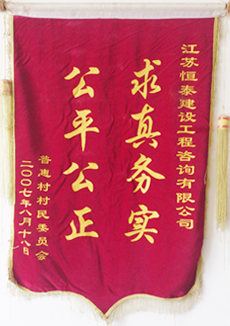 江苏恒泰建设工程咨询有限公司
求真务实
公平公正
普惠村村民委员会
二〇〇七年八月十八日